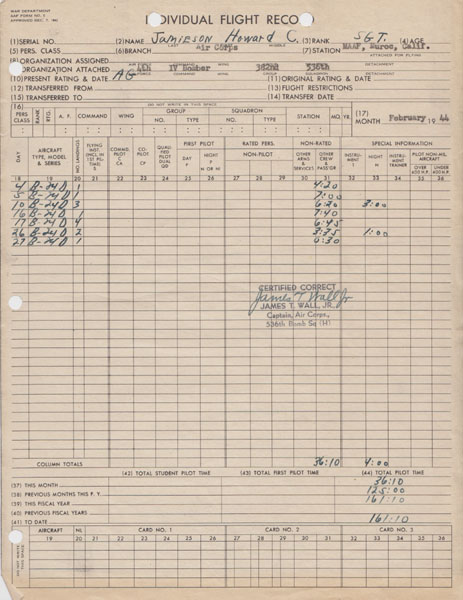 WAR DEPARTMENT
AAF FORM NO. 5
INDIVIDUAL FLIGHT RECO
(1) SERIAL NO. (2) NAME Jamieson Howard C. (3) RANK SGT. (4) AGE
LAST FIRST MIDDLE
(5) PERS. CLASS (6) BRANCH Air Corps (7) STATION MAAF, Muroc, Calif.
(8) ORGANIZATION ASSIGNED ATTACHED FOR FLYING
(9) ORGANIZATION ATTACHED 4th IV Bomber 382nd 536th
AIR FORCE COMMAND WING GROUP SQUADRON DETACHMENT
(10) PRESENT RATING & DATE AG (11) ORIGINAL RATING & DATE
(12) TRANSFERRED FROM (13) FLIGHT RESTRICTIONS
(15) TRANSFERRED TO (14) TRANSFER DATE
DO NOT WRITE IN THIS SPACE
(16) PERS. CLASS RANK RTG. A. F. COMMAND WING GROUP NO. TYPE SQUADRON NO. TYPE STATION MO. YR. (17) MONTH February 19 44
DAY AIRCRAFT TYPE, MODEL & SERIES NO. LANDINGS FLYING INST. (INCL. IN 1ST PIL. TIME) S COMMD. PILOT C CA CO-PILOT CP QUALIFIED PILOT DUAL QD FIRST PILOT DAY P NIGHT P N OR NI RATED PERS. NON-PILOT NON-RATED OTHER ARMS & SERVICES OTHER CREW & PASS'GR SPECIAL INFORMATION INSTRUMENT I NIGHT N INSTRUMENT TRAINER PILOT NON-MIL. AIRCRAFT UNDER 400 H.P. OVER 400 H.P.
18 19 20 21 22 23 24 25 26 27 28 29 30 31 32 33 34 35 36
4 B-24 D 1 4:20
5 B-24 D 1 7:00
10 B-24 D 3 6:20 3:00
16 B-24 D 1 7:40
17 B-24 D 4
26 B-24 D 2 1:00
27 B-24 D 1
CERTIFIED CORRECT
James T Wall Jr
JAMES T. WALL, JR.
Captain, Air Corps,
536th Bomb Sq (H)
COLUMN TOTALS 36:10 4:00
(42) TOTAL STUDENT PILOT TIME (43) TOTAL FIRST PILOT TIME (44) TOTAL PILOT TIME
(37) THIS MONTH 36:10
(38) PREVIOUS MONTHS THIS F. Y. 125:00
(39) THIS FISCAL YEAR 161:10
(40) PREVIOUS FISCAL YEARS
(41) TO DATE 161:10
AIRCRAFT NL CARD NO. 1 CARD NO. 2 CARD NO. 3
19 20 21 22 23 24 25 26 27 28 29 30 31 32 33 34 35 36
DO NOT WRITE IN THIS SPACE